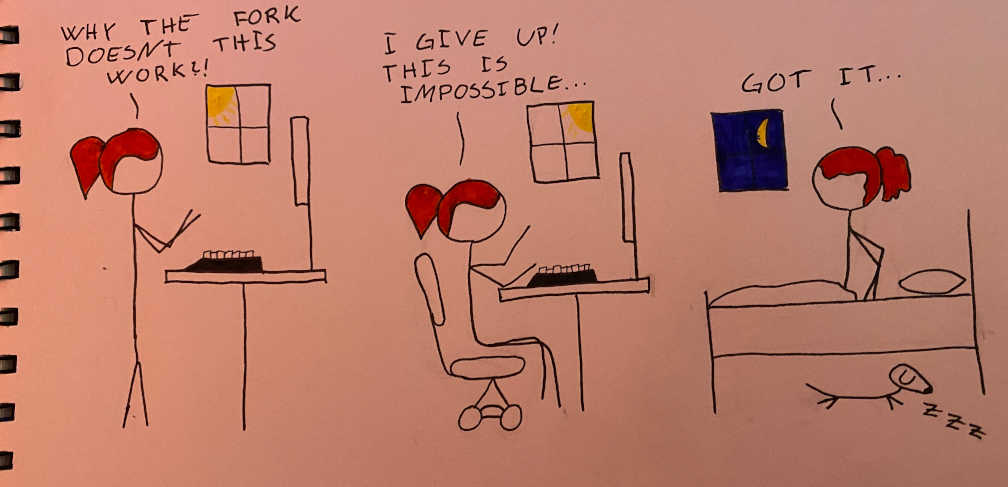 WHY THE FORK
DOESN'T THIS
WORK?!
I GIVE UP!
THIS IS
IMPOSSIBLE...
GOT IT...
z z z